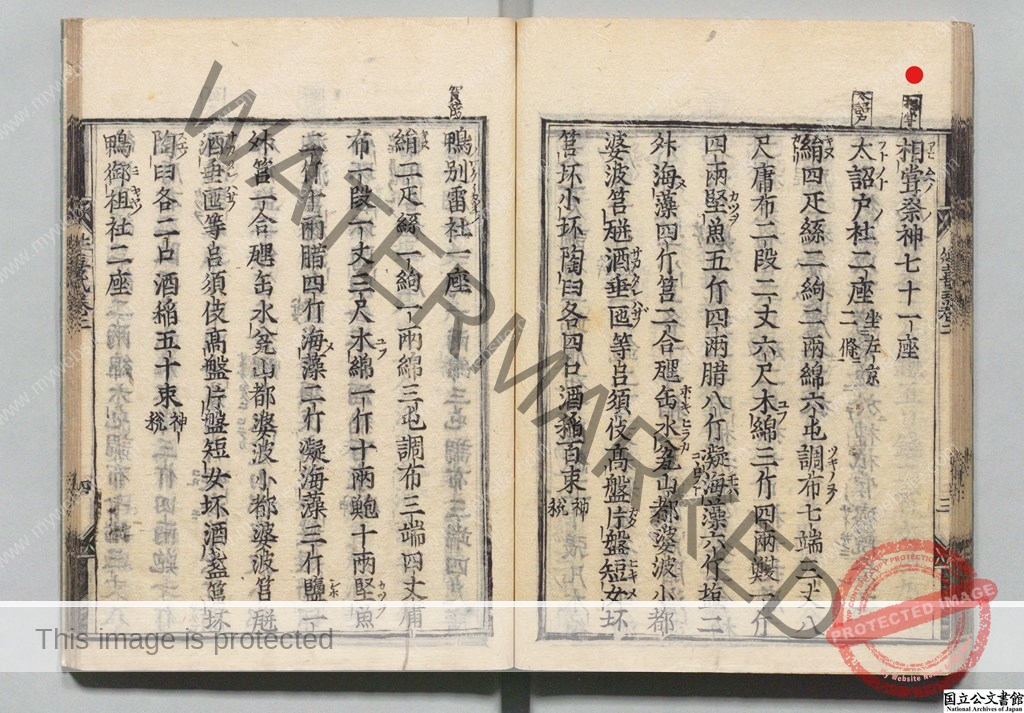 相嘗祭神七十一座
太詔戸社二座 坐左京二條
絹四疋絲二絇二兩綿六屯調布七端三丈八
尺庸布二段二丈六尺木綿三斤四兩鰒一斤
四兩堅魚五斤四兩腊八斤凝海藻六斤塩二
海藻四斤筥二合瓼缶水瓫山都婆波小都
婆波筥瓼酒垂匜等呂須伎高盤片盤短女坏
筥坏小坏陶臼各四口酒稲百束 神税
賀茂
鴨別雷社一座
絹二疋絲一絇一兩綿三屯調布三端四丈庸
布一段一丈三尺木綿一斤十兩鮑十兩堅魚
二斤十兩腊四斤海藻二斤凝海藻三斤鹽一
筥一合瓼缶水瓫山都婆波小都婆波筥瓼
酒垂匜等呂須伎高盤片盤短女坏酒盞筥坏
陶臼各二口酒稲五十束 神税
鴨御祖社二座
四
WATERMARKED
This image is protected
PROTECTED IMAGE
国立公文書館
National Archives of Japan